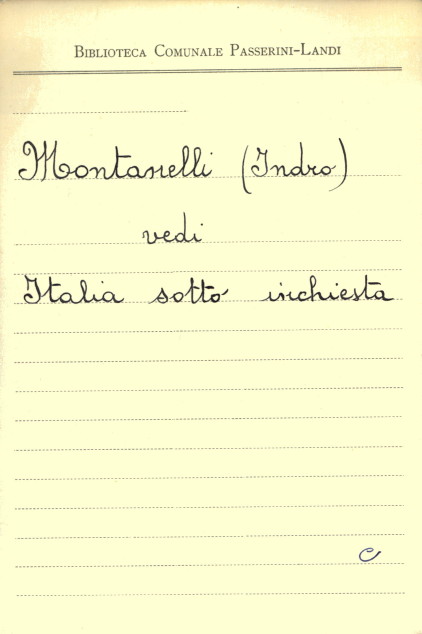 BIBLIOTECA COMUNALE PASSERINI-LANDI
Montanelli (Indro)
vedi
Italia sotto inchiesta
C